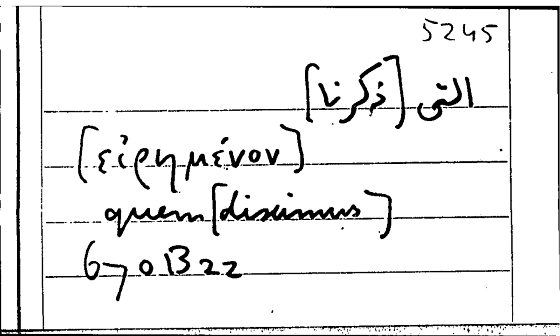 5245
التى [ذكرنا]
[εἰρημένον]
quem [diximus]
670B22